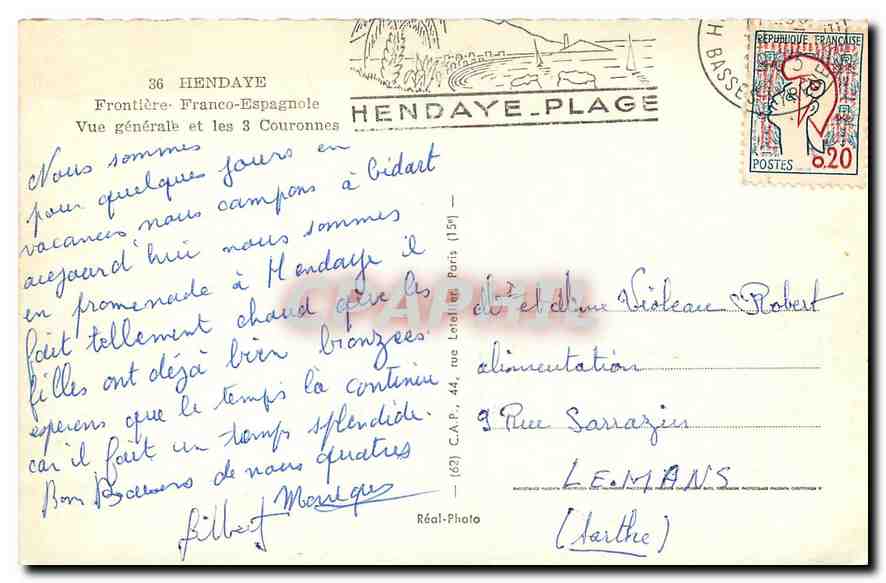 36 HENDAYE
Frontière Franco-Espagnole
Vue générale et les 3 Couronnes
HENDAYE_PLAGE
H BASSES
REPUBLIQUE FRANÇAISE
POSTES 0.20
Nous sommes
pour quelques jours en
vacances nous campons à bidart
aujourd'hui nous sommes
en promenade à Hendaye il
fait tellement chaud que les
filles ont déjà bien bronzées
esperons que le temps là continue
car il fait un temps splendide.
Bons Baisers de nous quatres
Gilbert Monique
CPAPHIL
(62) C.A.P., 44, rue Letellier, Paris (15e)
Mr et Mme Violeau Robert
alimentation
9 Rue Sarrazin
LE.MANS
(Sarthe)
Réal-Photo